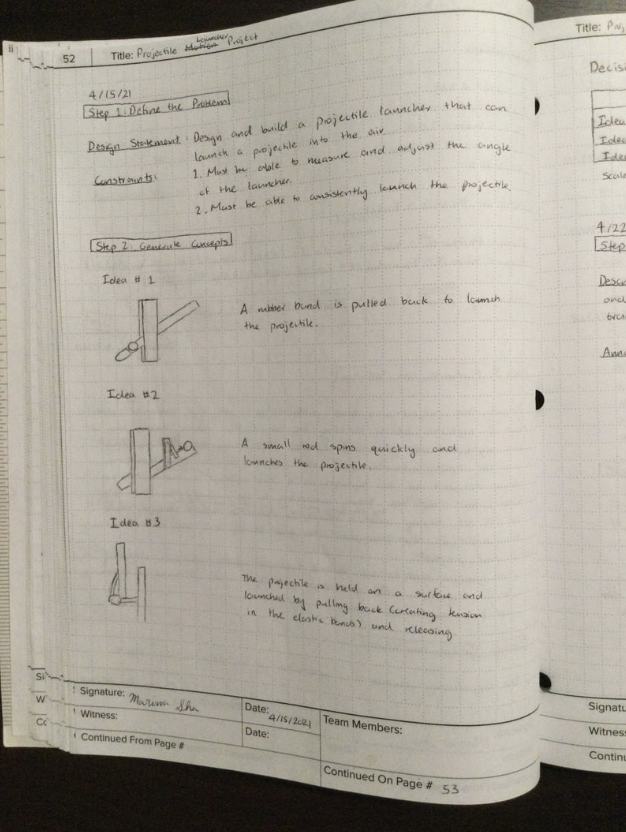 52
Title: Projectile Launching Project
4/15/21
Step 1: Define the Problem
Design Statement: Design and build a projectile launcher that can
launch a projectile into the air.
Constraints: 1. Must be able to measure and adjust the angle
of the launcher.
2. Must be able to consistently launch the projectile.
Step 2: Generate Concepts
Idea # 1
A rubber band is pulled back to launch
the projectile.
Idea #2
A small rod spins quickly and
launches the projectile.
Idea #3
The projectile is held on a surface and
launched by pulling back (creating tension
in the elastic bands) and releasing
Signature:
Date: 4/15/2021
Team Members:
Witness:
Date:
Continued From Page #
Continued On Page # 53
Title:
Decisi
Idea
Idea
Idea
Scale
4/22
Step
Descr
and
Ann
Signatu
Witness
Continu